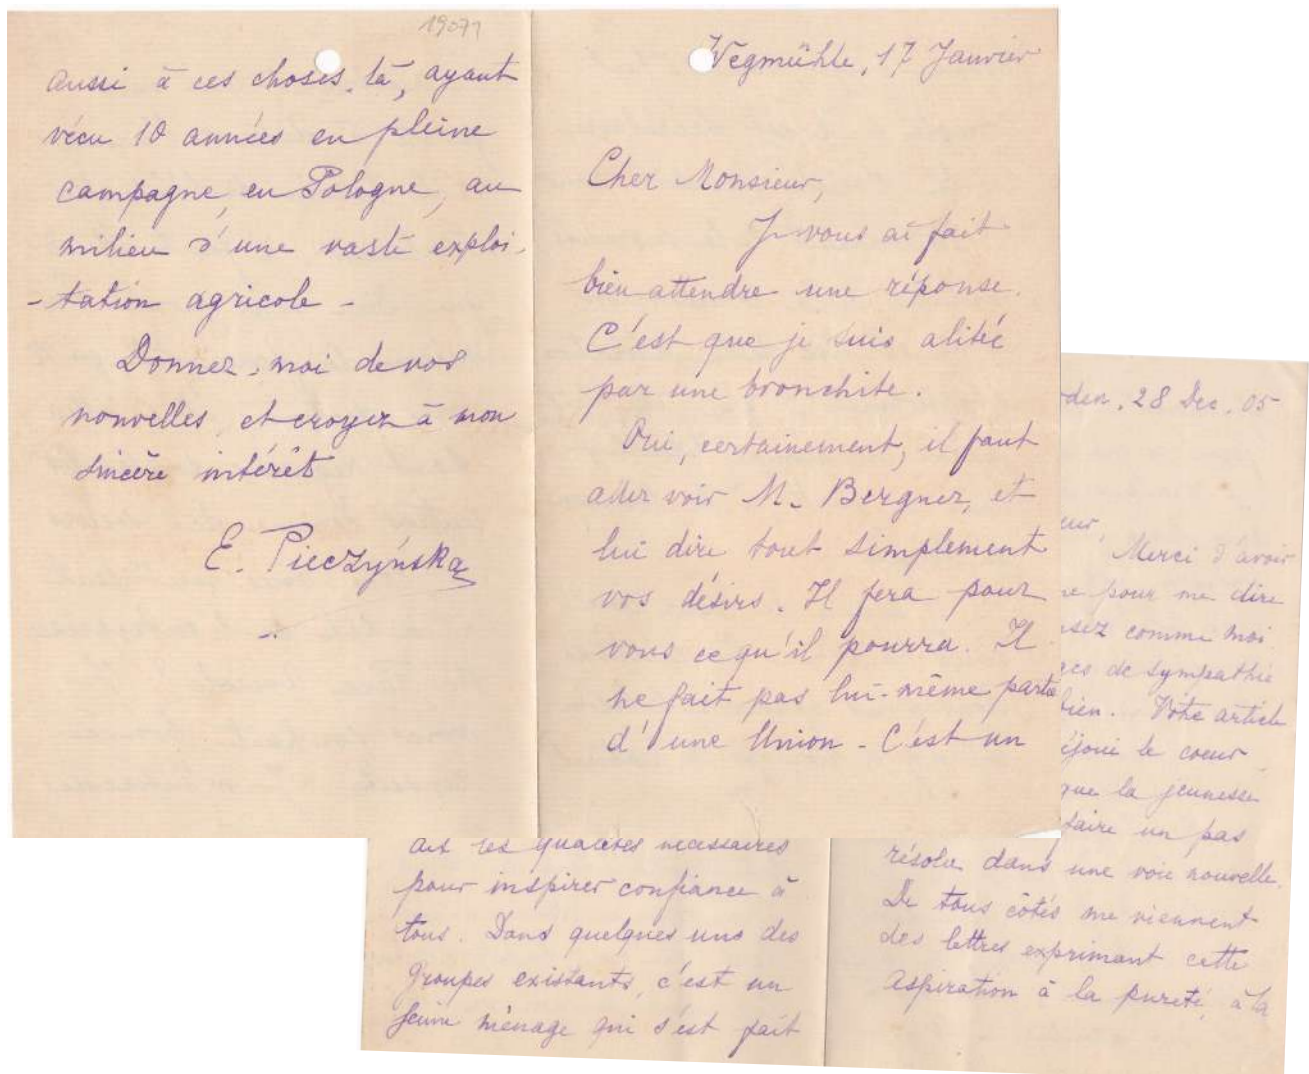 19071
aussi à ces choses-là, ayant
vécu 10 années en pleine
campagne, en Pologne, au
milieu d'une vaste exploi-
-tation agricole -
Donnez-moi de vos
nouvelles, et croyez à mon
sincère intérêt
E. Pieczyńska
Wegmühle, 17 Janvier
Cher Monsieur,
Je vous ai fait
bien attendre une réponse.
C'est que je suis alitée
par une bronchite.
Oui, certainement, il faut
aller voir M. Bergner, et
lui dire tout simplement
vos désirs. Il fera pour
vous ce qu'il pourra. Il
ne fait pas lui-même partie
d'une Union - C'est un
ait les qualités nécessaires
pour inspirer confiance à
tous. Dans quelques uns des
groupes existants, c'est un
jeune ménage qui s'est fait
den, 28 Dec. 05
eur,
Merci d'avoir
e pour me dire
nsez comme moi.
ges de sympathie
bien. Votre article
éjoui le coeur
que la jeunesse
faire un pas
résolu dans une voie nouvelle.
De tous côtés me viennent
des lettres exprimant cette
aspiration à la pureté, à la